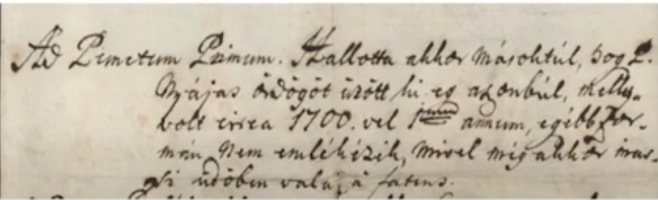 Ad Pimetum Primum. Hallotta akkor másoktúl, hog P.
Nyájas ördögöt űzött ki eg asonbúl, melly
volt circa 1700. vel 1mum annum, egébb for-
mán Nem emlékézik, mivel még akkor
idöben vala, à fatens.